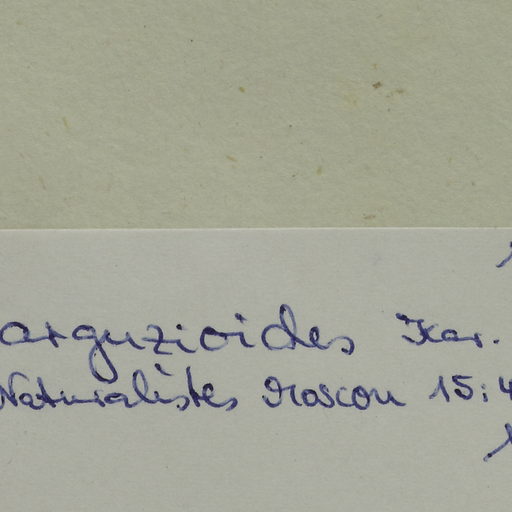 arguzioides Kar.
Naturalistes Moscou 15:4